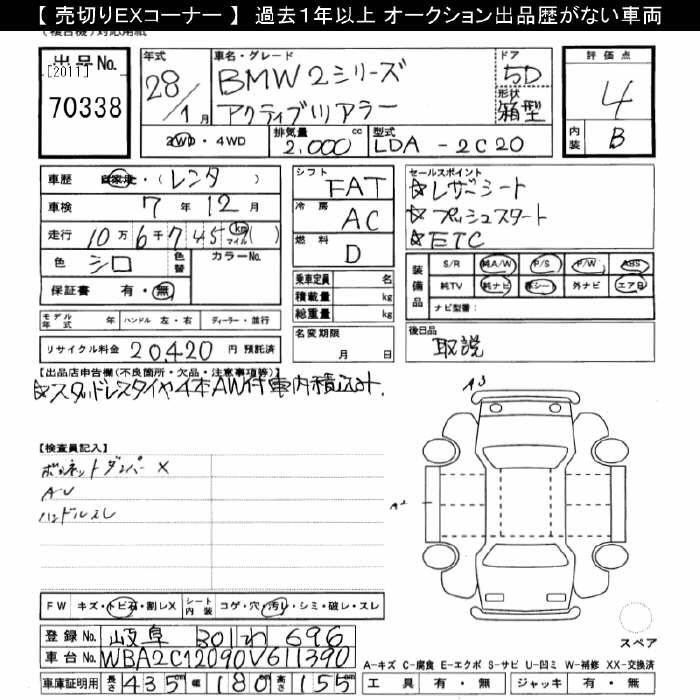 【 売切りEXコーナー 】 過去１年以上 オークション出品歴がない車両
(複合機)対応用紙
出品No.
[2011]
70338
年式
28/1月
車名・グレード
BMW 2シリーズ
アクティブツアラー
ドア
5D
形状
箱型
評価点
4
内装
B
2WD・4WD
排気量
2,000 cc
型式
LDA - 2C20
車歴 自家・(レンタ)
車検 7年 12月
走行 10万6千745 km マイル ( )
色 シロ 色替 カラーNo.
保証書 有・無
モデル年式 年 ハンドル 左・右 ディーラー・並行
リサイクル料金 20,420 円 預託済
シフト
FAT
冷房
AC
燃料
D
乗車定員 名
積載量 kg
総重量 kg
名変期限
月 日
セールスポイント
☆レザーシート
☆プッシュスタート
☆ETC
装備品 S/R 純A/W P/S P/W ABS
純TV 純ナビ 革シート 外ナビ エアB
ナビ型番:
後日品
取説
【出品店申告欄(不良箇所・欠品・注意事項等)】
☆スタッドレスタイヤ4本AW付車内積込み.
【検査員記入】
ボンネットダンパーX
AU
ハンドルスレ
A3
A2
FW キズ・トビ石・割レX シート内装 コゲ・穴・汚レ・シミ・破レ・スレ
登録No. 岐阜 301 わ 696
車台No. WBA2C12090V611390
車庫証明用 長さ 435cm 幅 180cm 高さ 155cm
スペア
A-キズ C-腐食 E-エクボ S-サビ U-凹ミ W-補修 XX-交換済
工具 有・無 ジャッキ 有・無